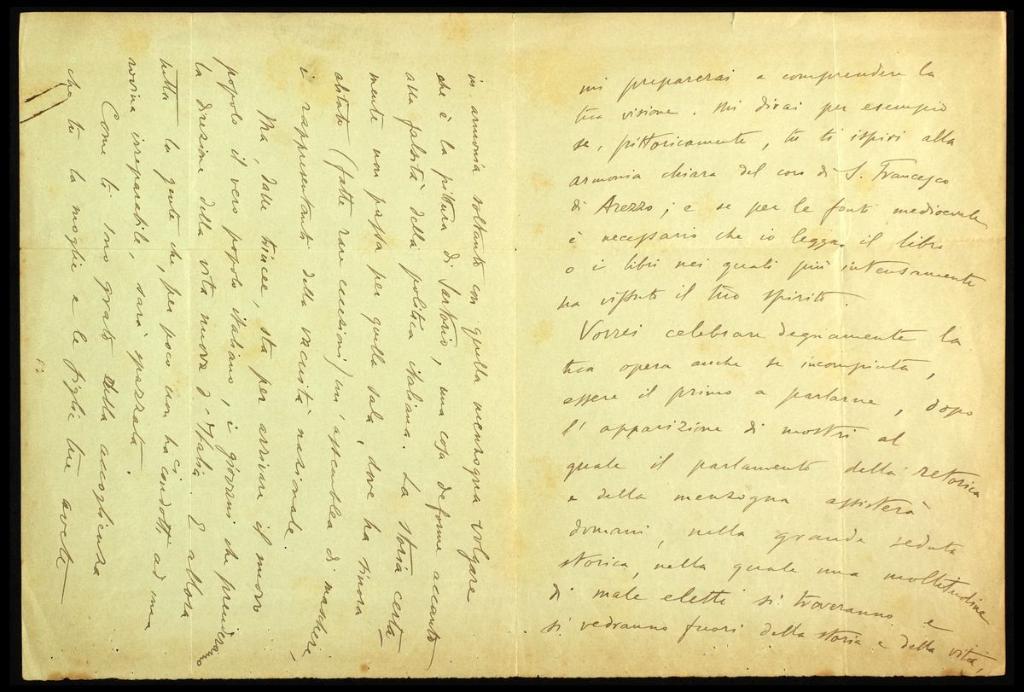 mi preparerai a comprendere la
tua visione. Mi dirai per esempio
se, pittoricamente, tu ti ispiri alla
armonia chiara del coro di S. Francesco
di Arezzo; e se per le fonti medioevali
è necessario che io legga il libro
o i libri nei quali più intensamente
ha vissuto il tuo spirito.
Vorrei celebrare degnamente la
tua opera anche se incompiuta,
essere il primo a parlarne, dopo
l'apparizione di mostri al
quale il parlamento della retorica
e della menzogna assisterà
domani, nella grande seduta
storica, nella quale una moltitudine
di male eletti si troveranno e
si vedranno fuori della storia e della vita,
in armonia soltanto con quella menzogna volgare
che è la pittura di Sartorio, una cosa deforme accanto
alla falsità della politica italiana. La storia certa
mente non passa per quella sala, dove ha sinora
abitato (fatte rare eccezioni) un'assemblea di maschere,
i rappresentanti della vacuità nazionale.
Ma, dalle trincee, sta per arrivare il nuovo
popolo il vero popolo italiano, i giovani che prenderanno
la direzione della vita nuova d'Italia. E allora
tutta la gente che, per poco non ha condotti ad una
rovina irreparabile, sarà spazzata.
Come ti sono grato della accoglienza
che tu la moglie e le figlie tue avete